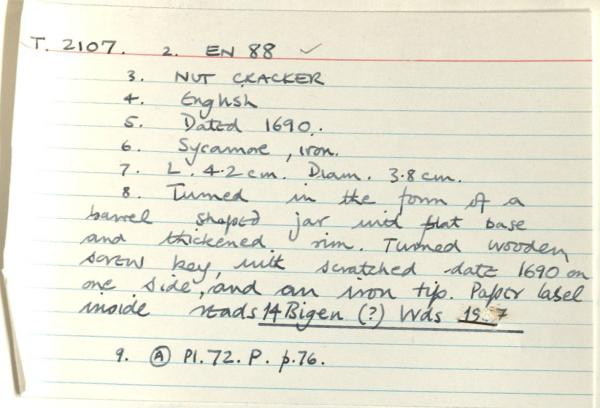 T. 2107. 2. EN 88 ✓
3. NUT CRACKER
4. English
5. Dated 1690.
6. Sycamore, iron.
7. L. 4.2 cm. Diam. 3.8 cm.
8. Turned in the form of a
barrel shaped jar with flat base
and thickened rim. Turned wooden
screw key, with scratched date 1690 on
one side, and an iron tip. Paper label
inside reads 14 Bigen (?) Wds
9. Ⓐ Pl. 72. P. p. 76.